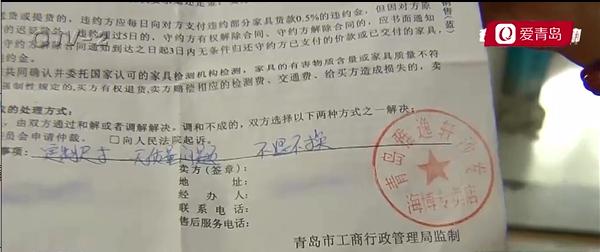 QTV-2
爱青岛
货或提货的,违约方应每日向对方支付违约部分家具货款0.5%的违约金,但因对方原
的迟延超过5日的,守约方有权解除合同。守约方解除合同的,应书面通知
守约方解除合同通知到达之日起3日内无条件归还守约方已支付的价款或已交付的家具,
违约金。
共同确认并委托国家认可的家具检测机构检测,家具的有害物质含量或家具质量不符
强制性规定的,买方有权退货,卖方赔偿相应的检测费、交通费、给买方造成损失的,卖
的处理方式:
,由双方通过和解或者调解解决。调和不成的,双方选择以下两种方式之一解决:
员会申请仲裁。 □向人民法院起诉。
事项: 定制尺寸 无质量问题 不退不换
卖方(签章):
地 址:
经 办 人:
联系电话:
售后服务电话:
青岛 逸轩
海博专卖店
青岛市工商行政管理局监制
销售
(蓝)